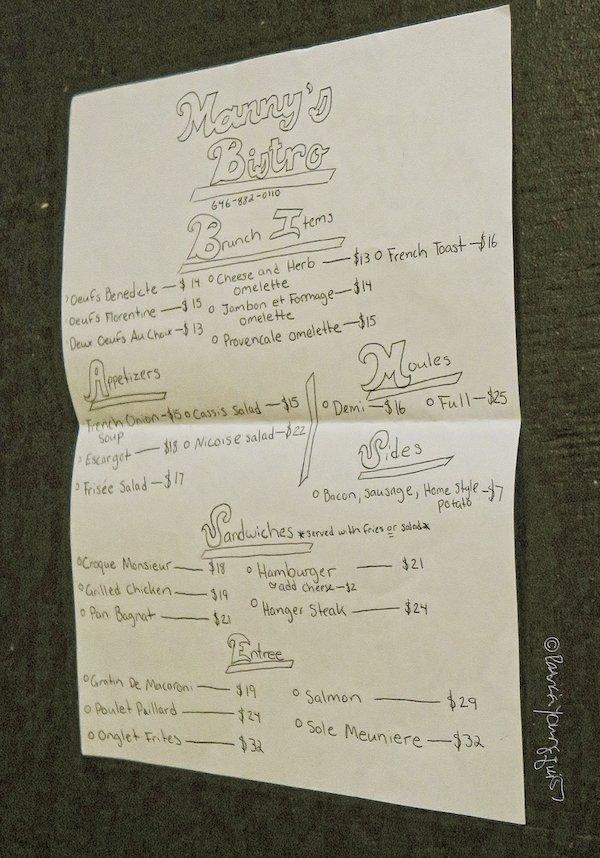 Manny's
Bistro
646-882-0110
Brunch Items
Oeufs Benedicte — $14
Oeufs Florentine — $15
Deux Oeufs Au Choix — $13
Cheese and Herb — $13
omelette
Jambon et Formage — $14
omelette
Provencale omelette — $15
French Toast — $16
Appetizers
French Onion — $15
Soup
Escargot — $18
Frisée Salad — $17
Cassis Salad — $15
Nicoise salad — $22
Moules
Demi — $16
Full — $25
Sides
Bacon, Sausage, Home Style — $7
potato
Sandwiches *served with fries or salad*
Croque Monsieur — $18
Grilled Chicken — $19
Pan Bagnat — $21
Hamburger — $21
add cheese — $2
Hanger Steak — $24
Entree
Gratin De Macaroni — $19
Poulet Paillard — $24
Onglet Frites — $32
Salmon — $29
Sole Meuniere — $32